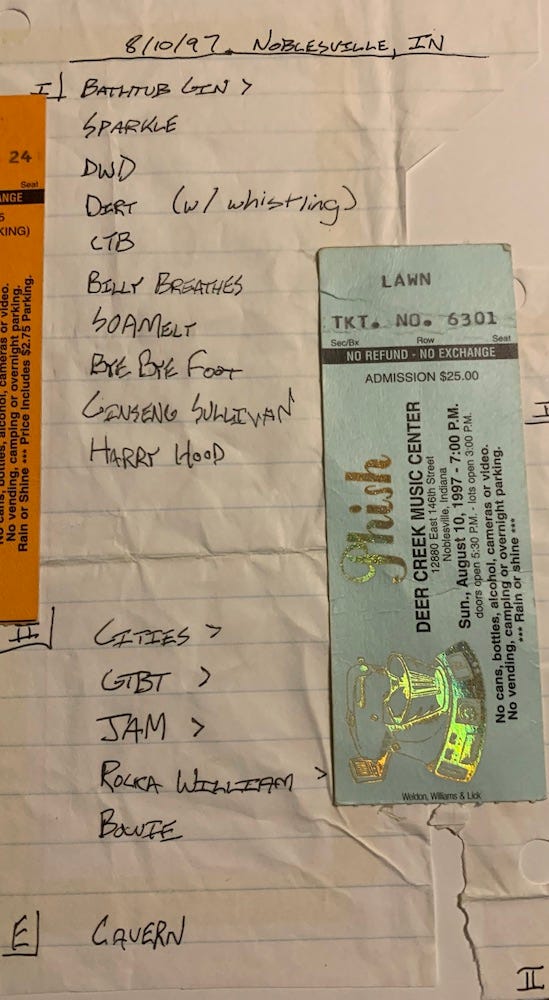 8/10/97. NOBLESVILLE, IN
I BATHTUB GIN >
SPARKLE
DWD
DIRT (w/ whistling)
CTB
BILLY BREATHES
SOAMELT
BYE BYE FOOT
GINSENG SULLIVAN
HARRY HOOD
II CITIES >
GTBT >
JAM >
ROCKA WILLIAM >
BOWIE
E CAVERN
24
Seat
ANGE
KING)
No cans, bottles, alcohol, cameras or video.
No vending, camping or overnight parking.
Rain or Shine *** Price includes $2.75 Parking.
LAWN
TKT. NO. 6301
Sec/Bx Row Seat
NO REFUND - NO EXCHANGE
ADMISSION $25.00
Phish
DEER CREEK MUSIC CENTER
12880 East 146th Street
Noblesville, Indiana
Sun., August 10, 1997 - 7:00 P.M.
doors open 5:30 P.M. - lots open 3:00 P.M.
No cans, bottles, alcohol, cameras or video.
No vending, camping or overnight parking.
*** Rain or shine ***
Weldon, Williams & Lick
II